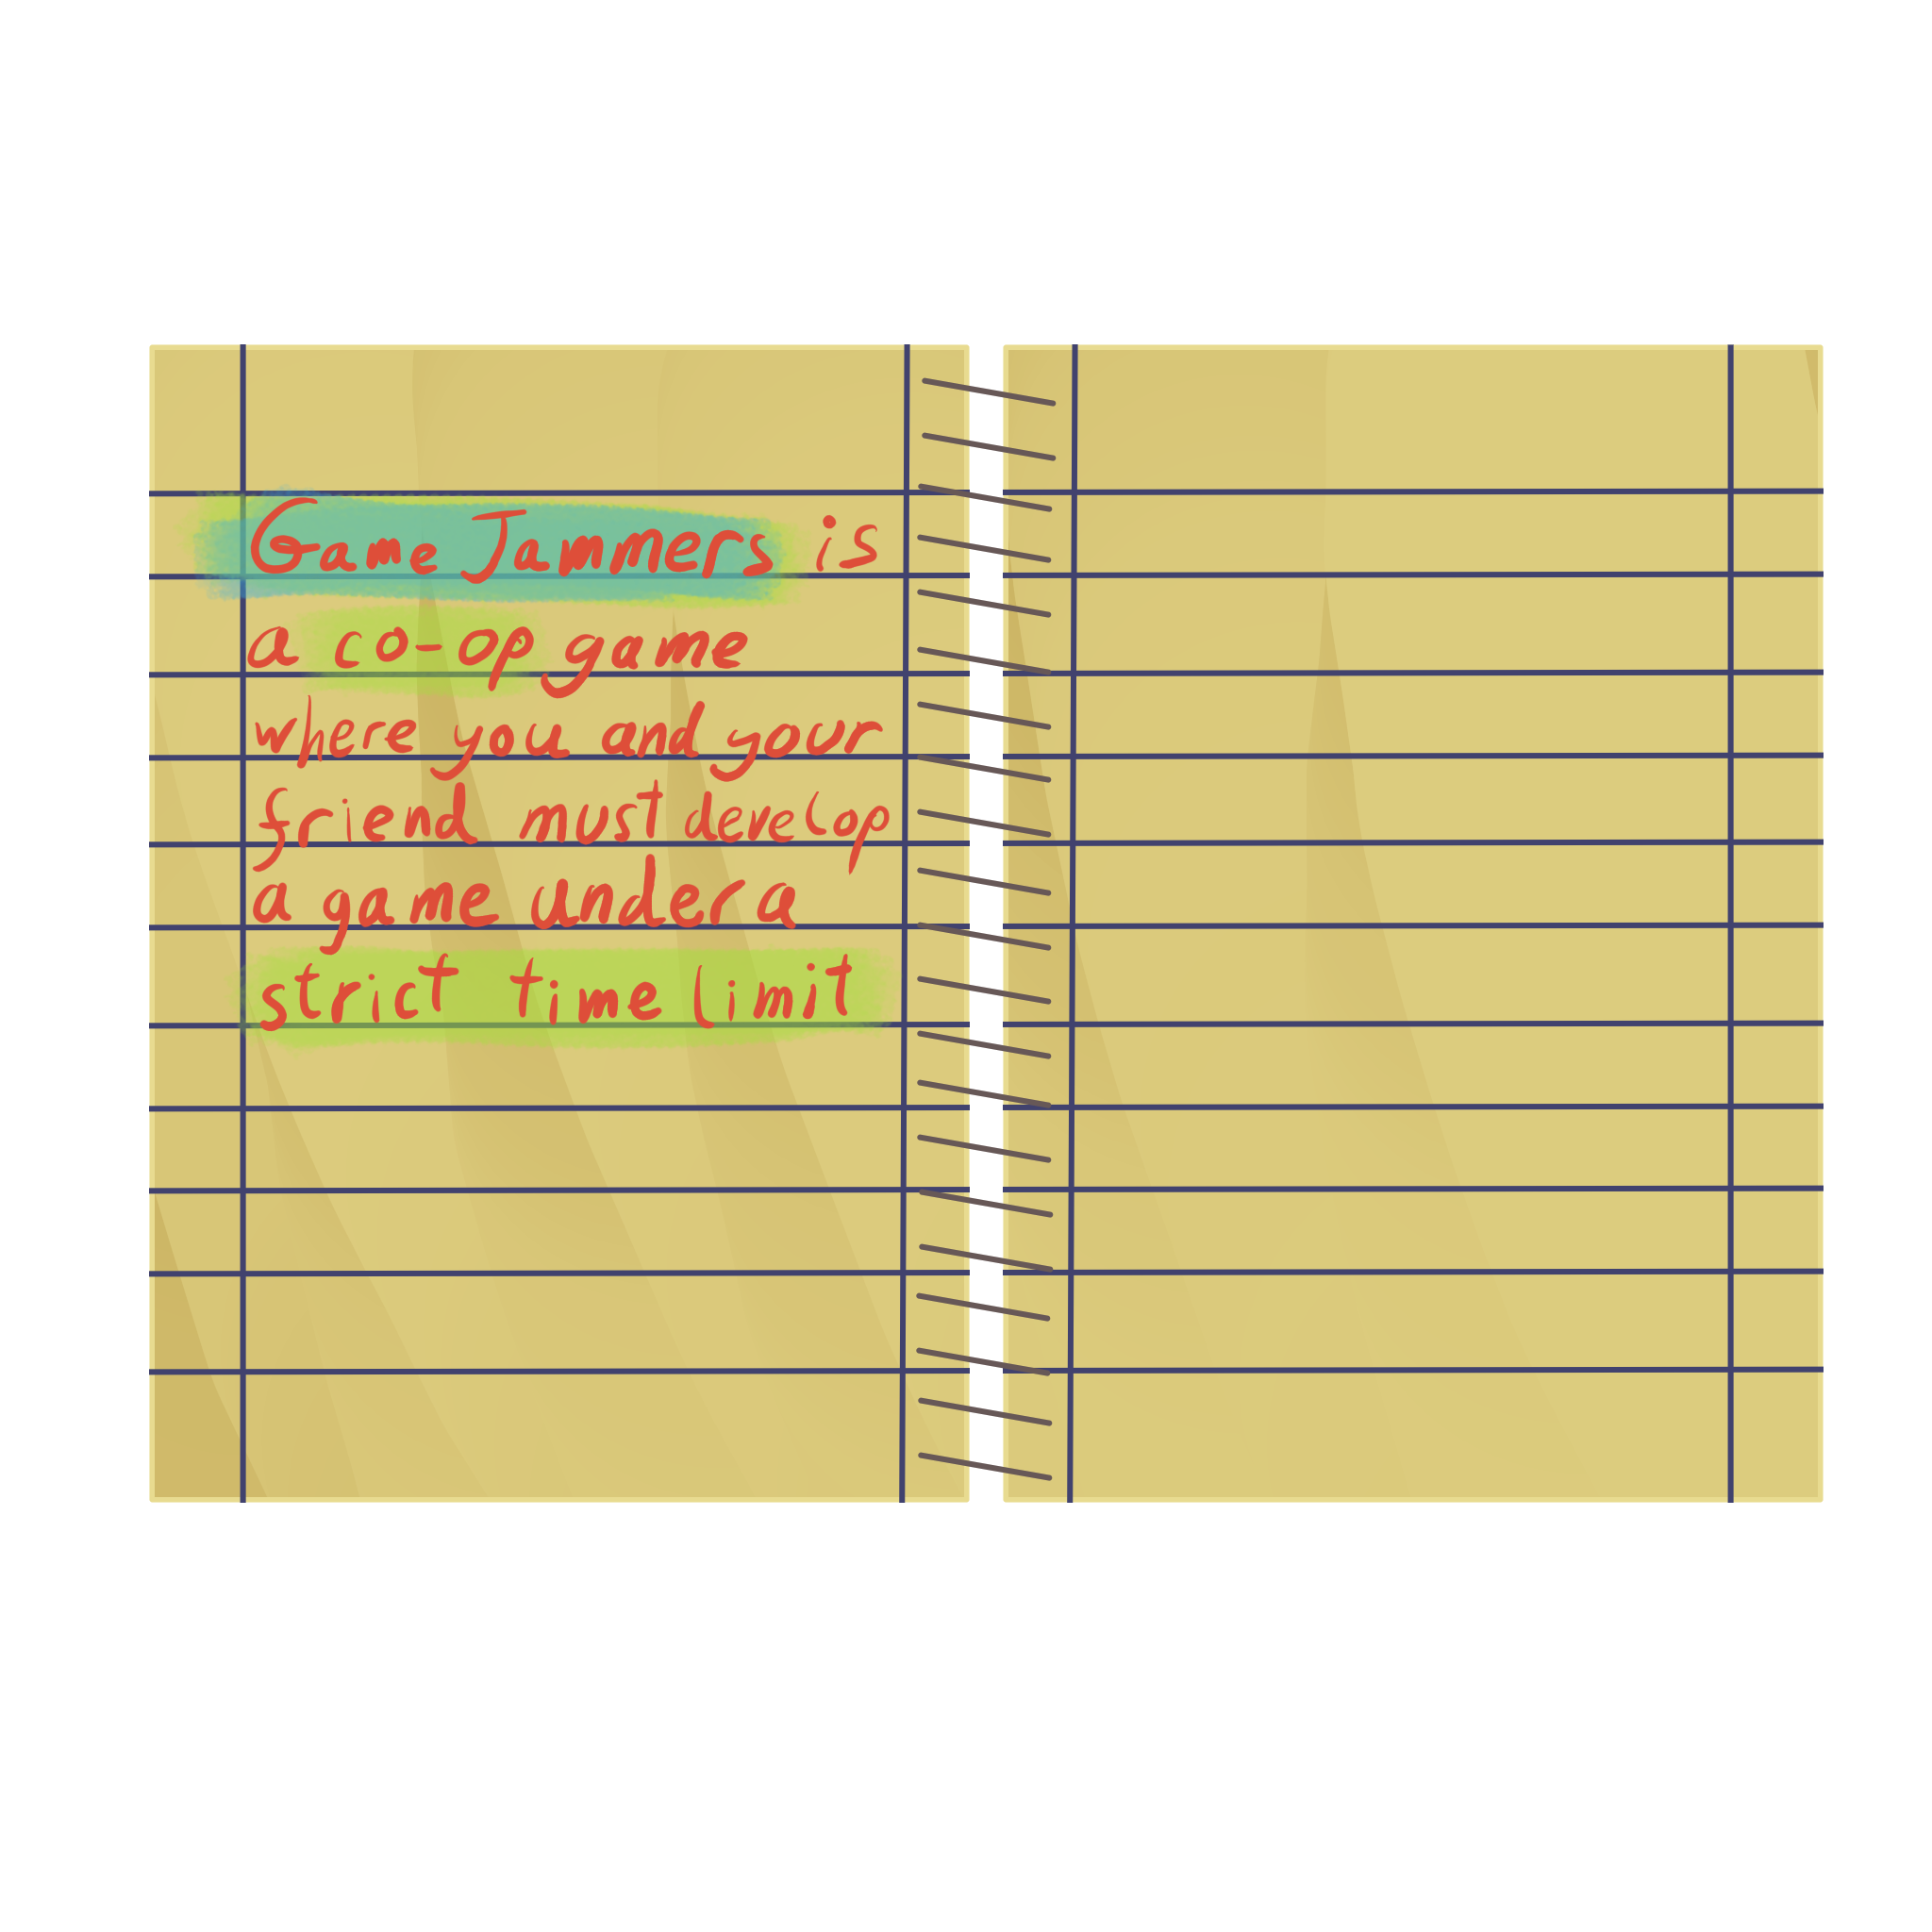 Game Jammers is
a co-op game
where you and your
friend must develop
a game under a
strict time limit